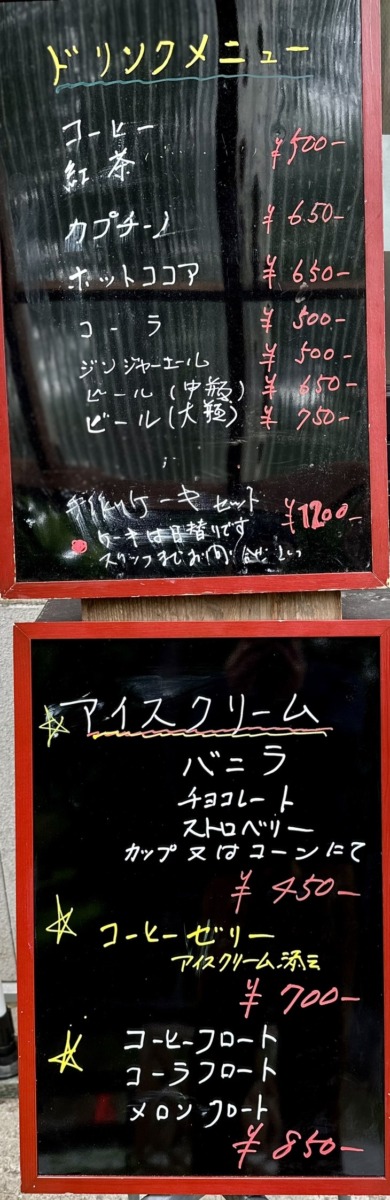 ドリンクメニュー
コーヒー
紅茶 ¥500-
カプチーノ ¥650-
ホットココア ¥650-
コーラ ¥500-
ジンジャーエール ¥500-
ビール(中瓶) ¥650-
ビール(大瓶) ¥750-
手作りケーキセット ¥1200-
ケーキは日替りです
スタッフまでお問い合せ下さい
☆アイスクリーム
バニラ
チョコレート
ストロベリー
カップ又はコーンにて
¥450-
☆コーヒーゼリー
アイスクリーム添え
¥700-
☆コーヒーフロート
コーラフロート
メロンフロート
¥850-